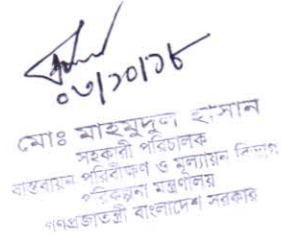 ০৩/১০/১৮
মোঃ মাহমুদুল হাসান
সহকারী পরিচালক
বাস্তবায়ন পরিবীক্ষণ ও মূল্যায়ন বিভাগ
পরিকল্পনা মন্ত্রণালয়
গণপ্রজাতন্ত্রী বাংলাদেশ সরকার